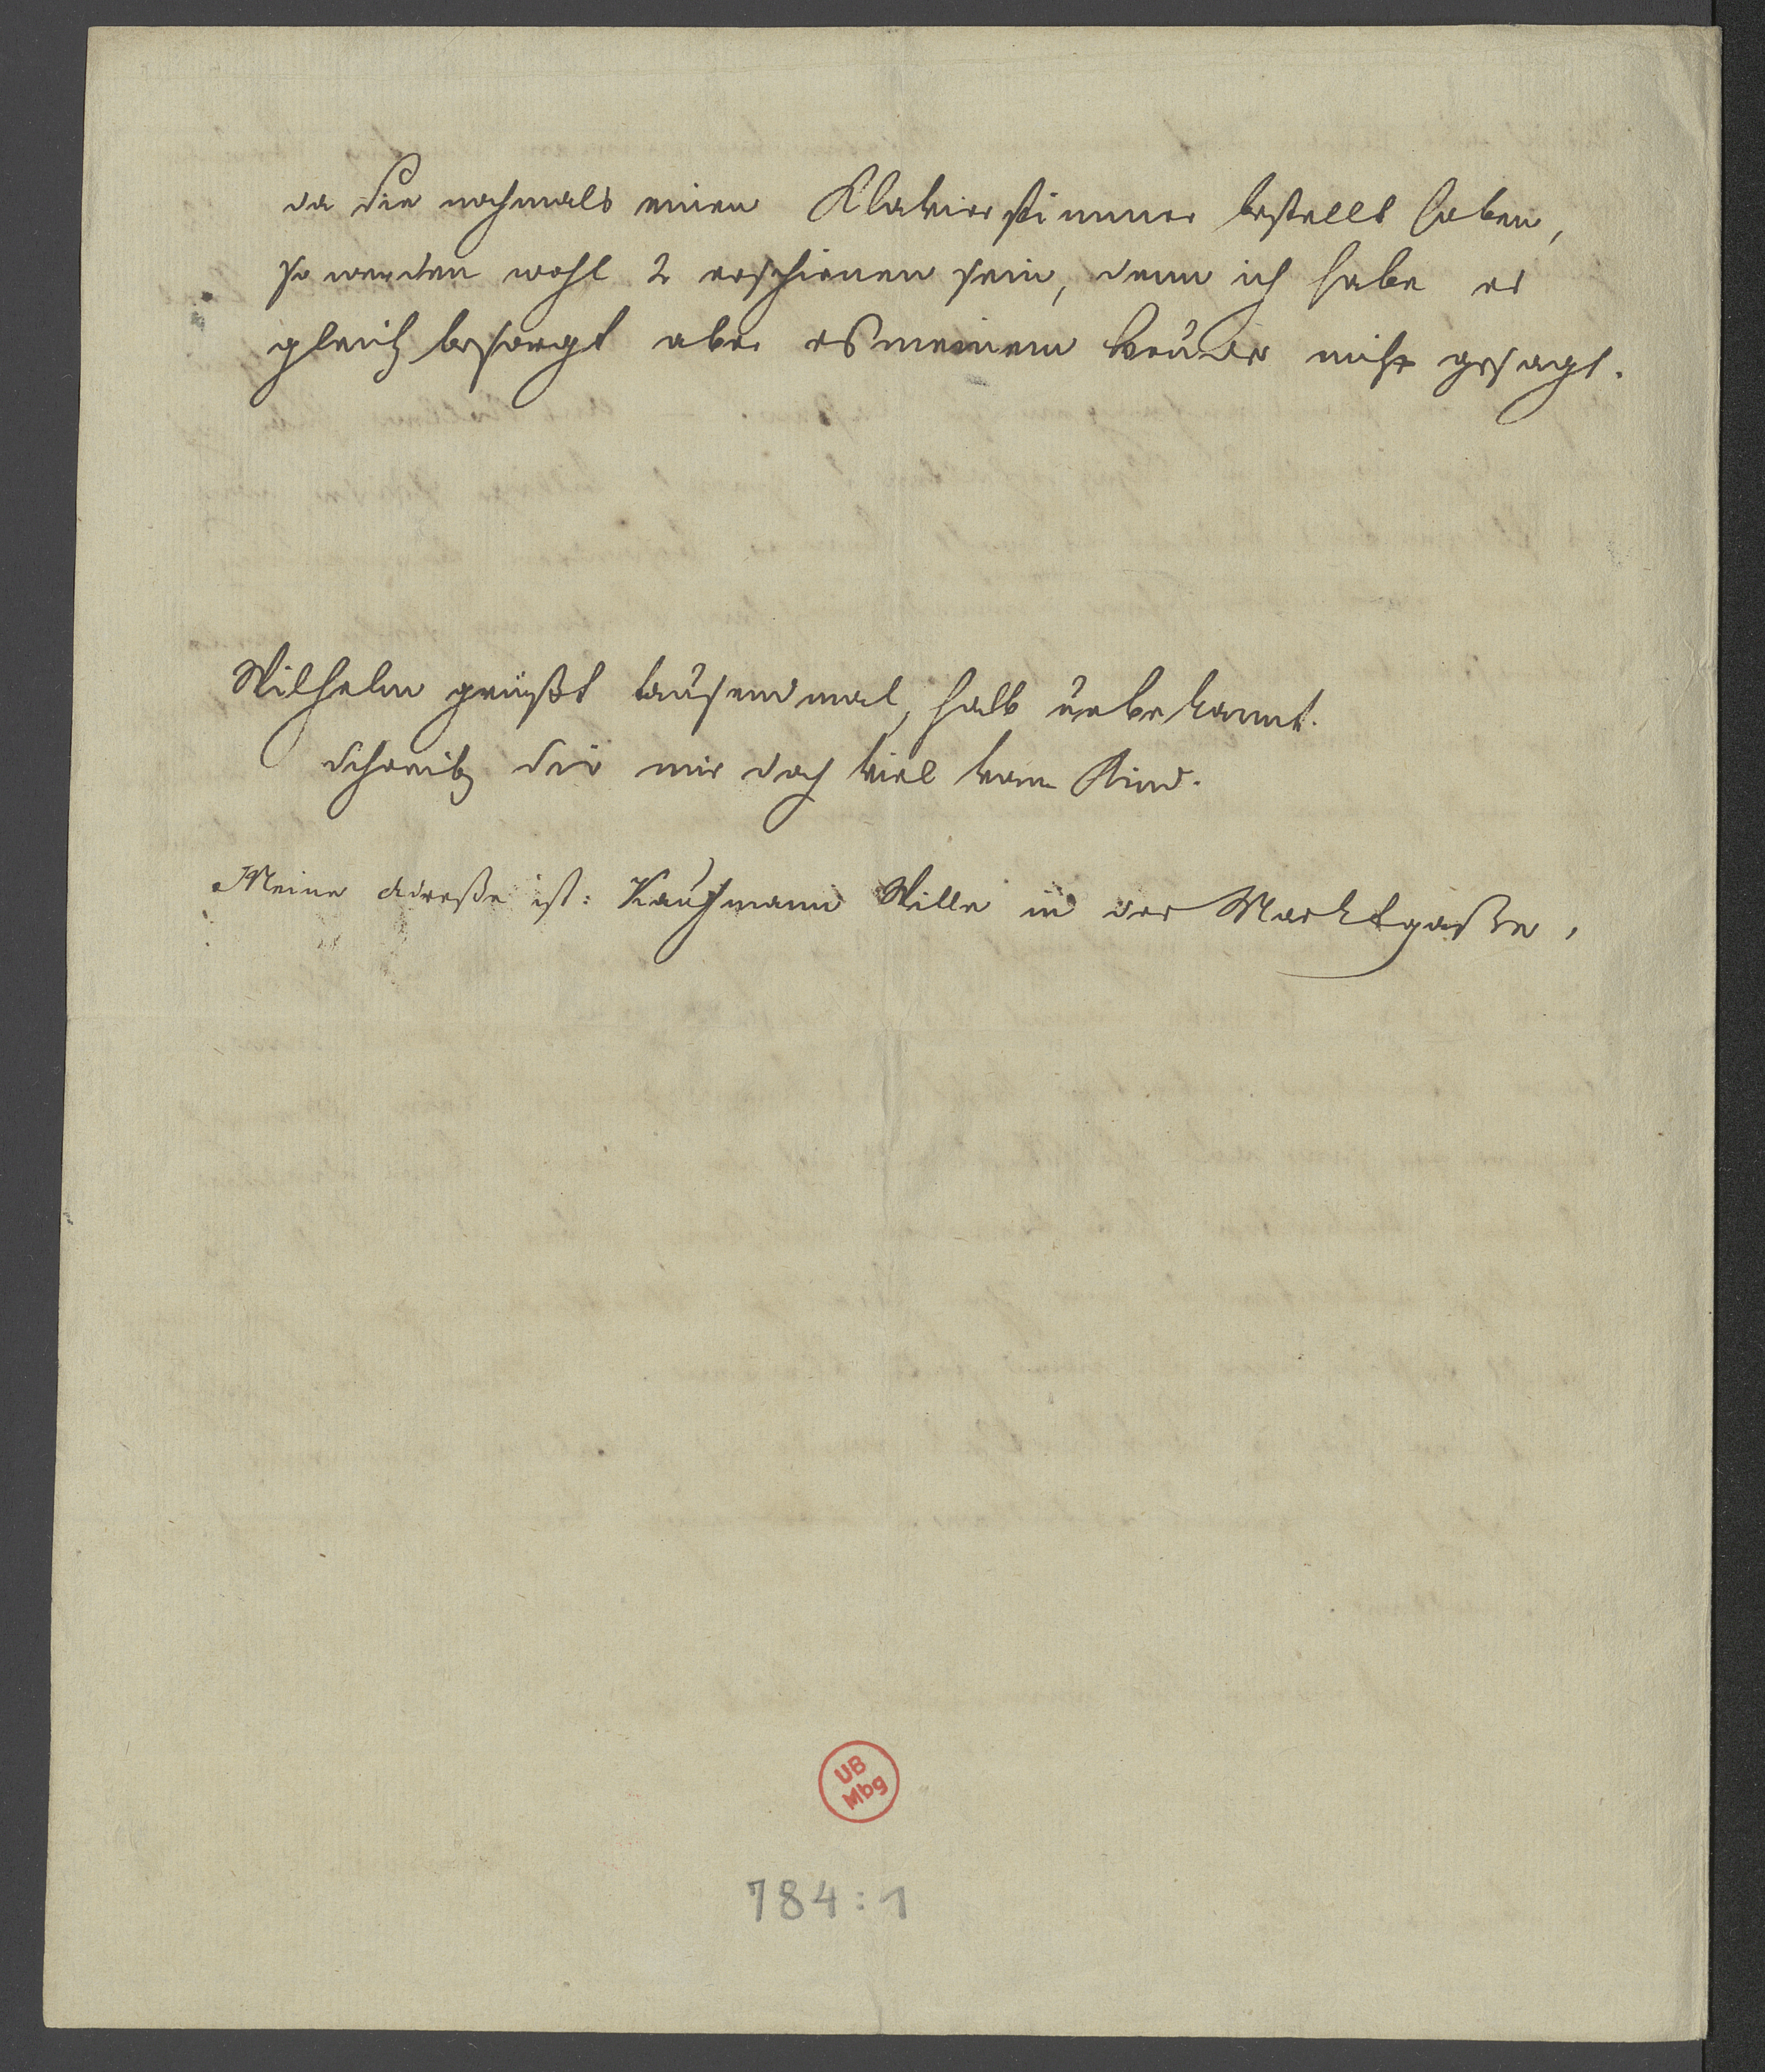 da Sie nochmals einen Klavierstimmer bestellt haben,
so werden wohl 2 erschienen sein, denn ich habe es
gleich besorgt aber es meinem Bruder nicht gesagt.
Wilhelm grüßt tausendmal, halb unbekannt.
Schreib Du mir doch viel vom Kind.
Meine Adreße ist: Kaufmann Wille in der Marktgaße,
UB
Mbg
784:1